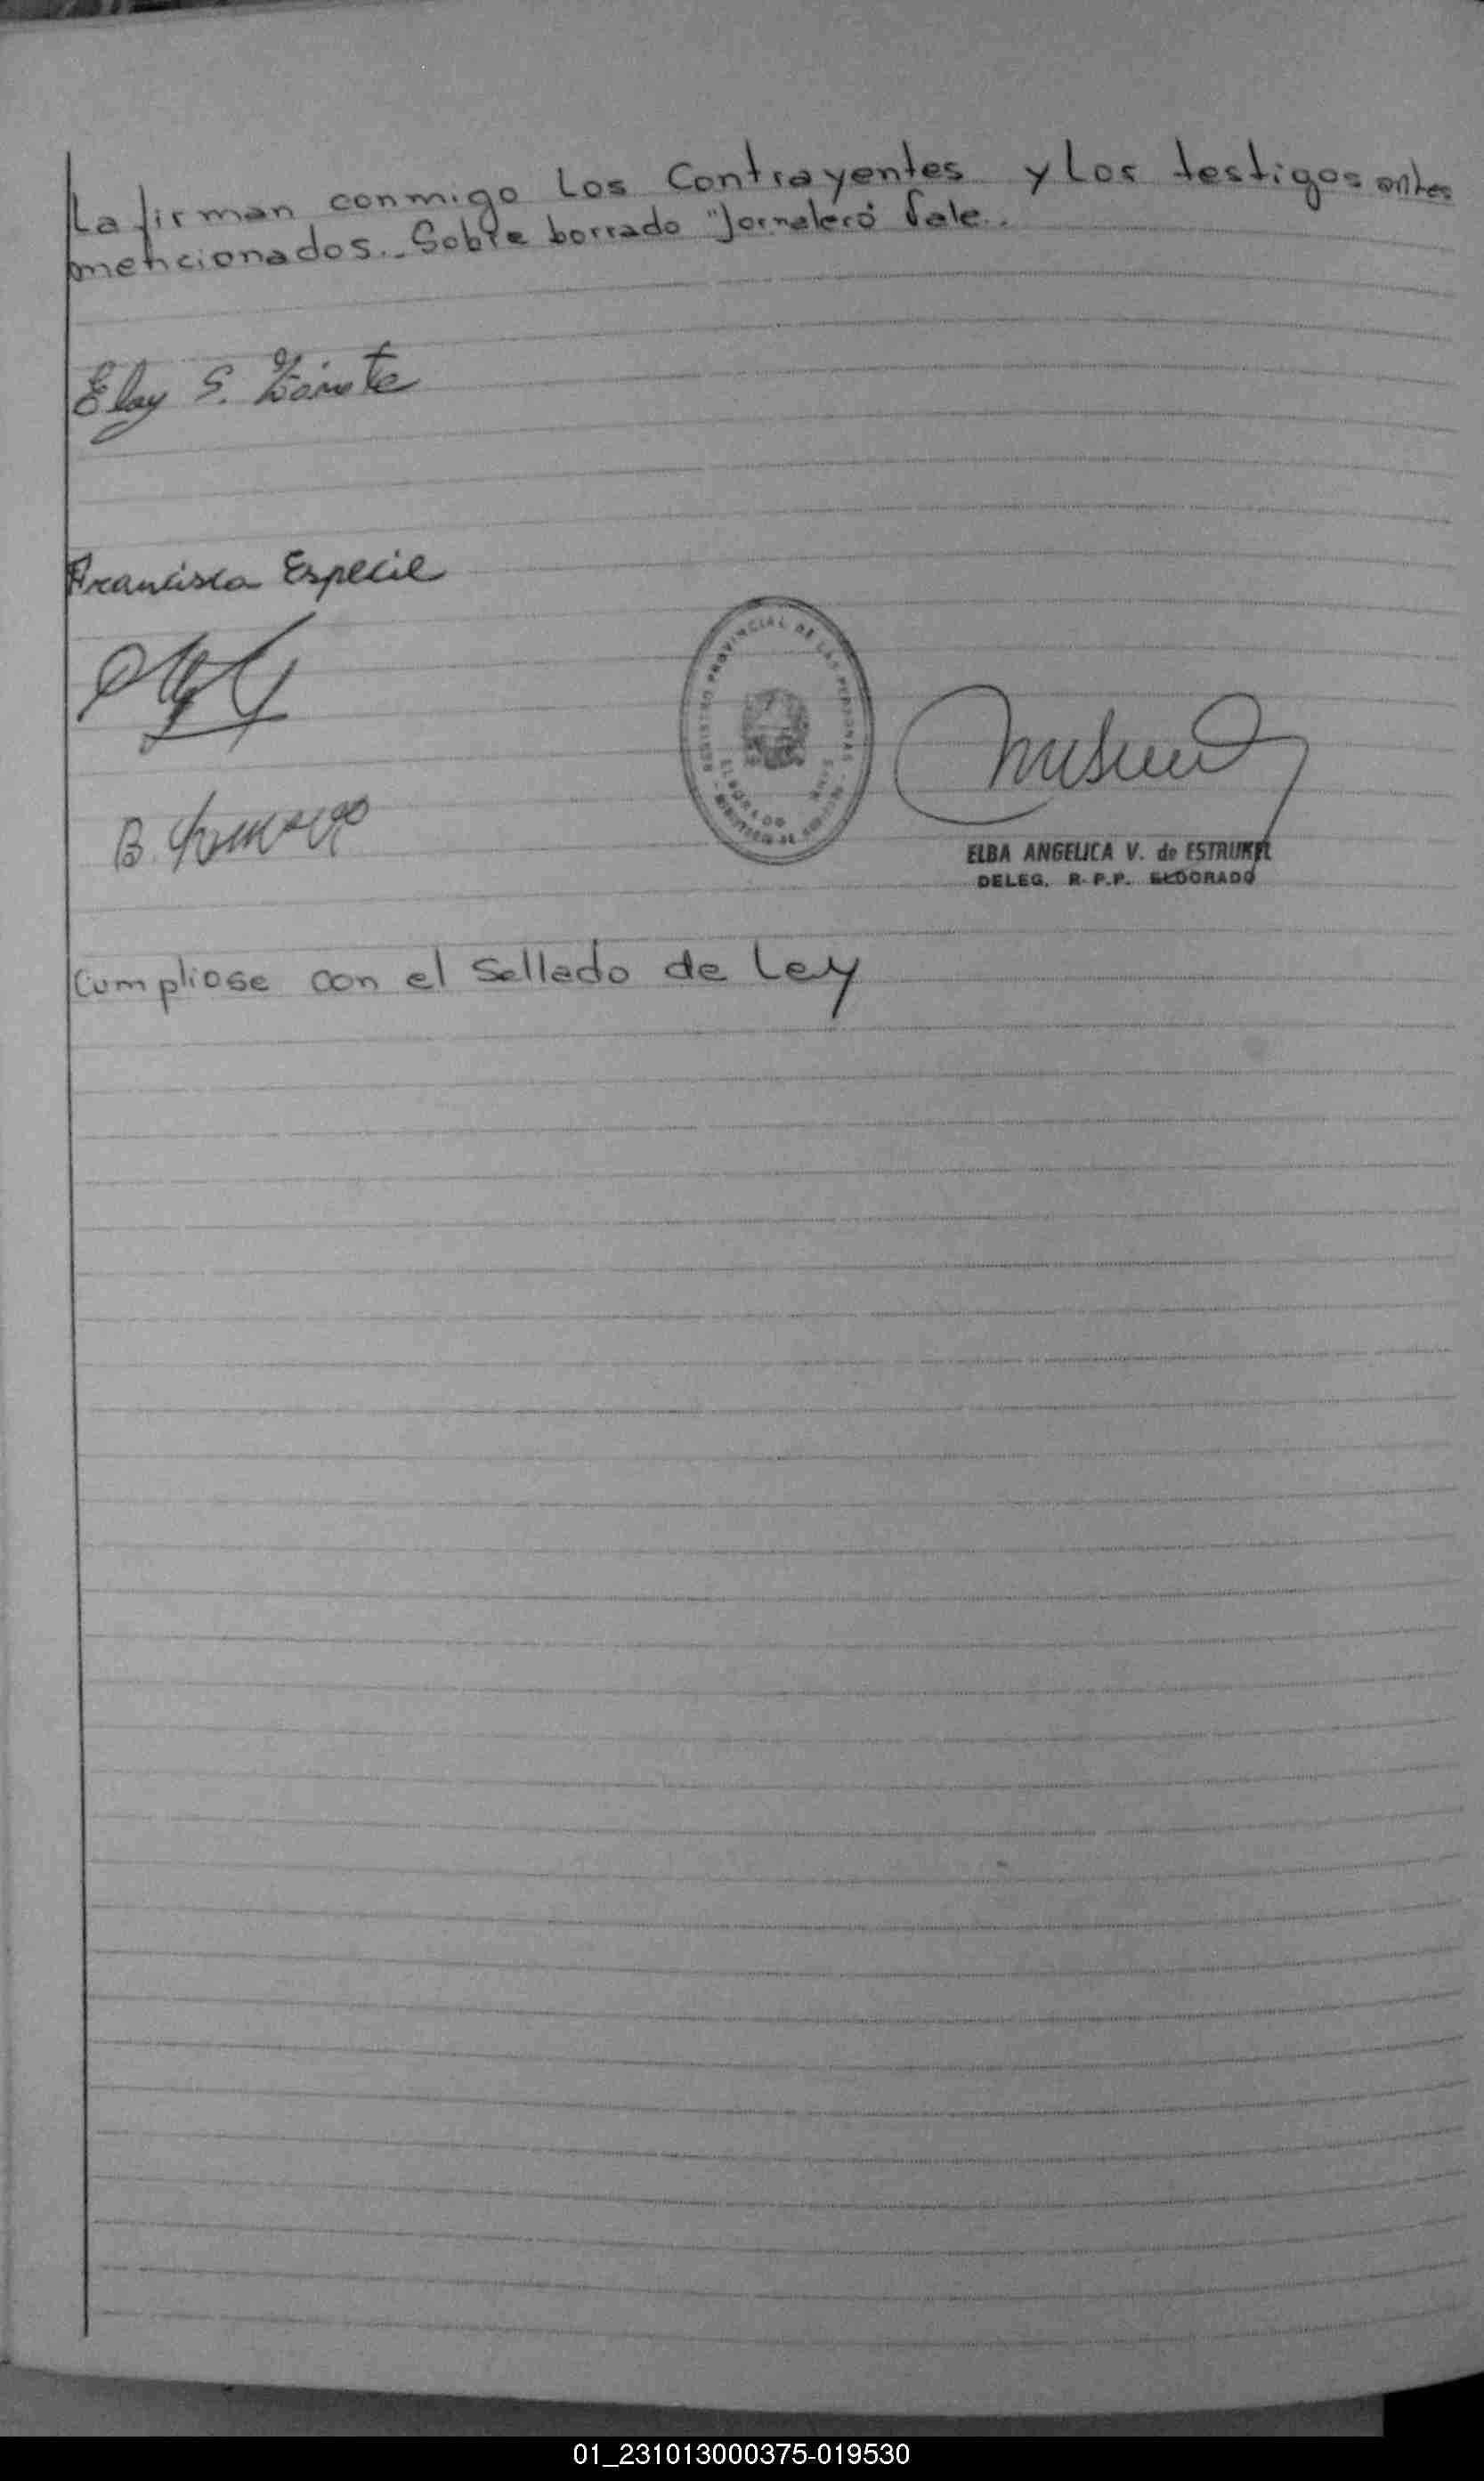 La firman conmigo Los Contrayentes y Los testigos antes
mencionados.. Sobre borrado "Jornalero" Vale..
Eloy S. Zárate
Francisca Especie
REGISTRO PROVINCIAL DE LAS PERSONAS
ELDORADO
B.
ELBA ANGELICA V. de ESTRUKEL
DELEG. R.P.P. ELDORADO
Cumpliose con el Sellado de Ley
01_231013000375-019530